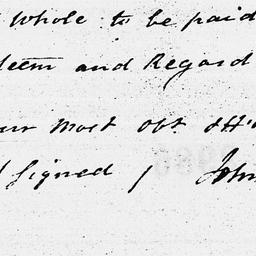 Whole to be paid
teem and Regard
ur Most Obt & H
Signed / John